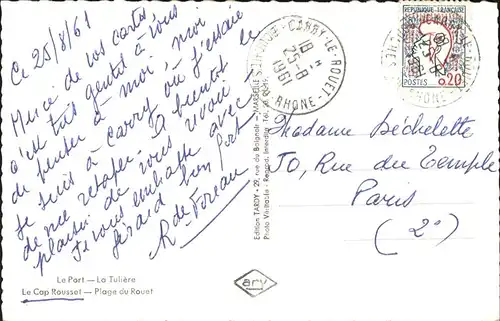 Ce 25/8/61
Merci de vos cartes,
c'est très gentil à vous
de penser à moi, moi
je suis à Carry où j'essaie
de me retaper. A bientôt le
plaisir de vous revoir
Je vous embrasse avec
Gérard bien fort
R de
Le Port — La Tulière
Le Cap Rousset — Plage du Rouet
Edition TARDY • 29, rue du Baignoir — MARSEILLE
CARRY-LE-ROUET
BOUCHES DU RHONE
18 H
25-8
1961
REPUBLIQUE FRANÇAISE
POSTES 0,20
Madame Béchelette
70, Rue du Temple
Paris
(2°)
ary